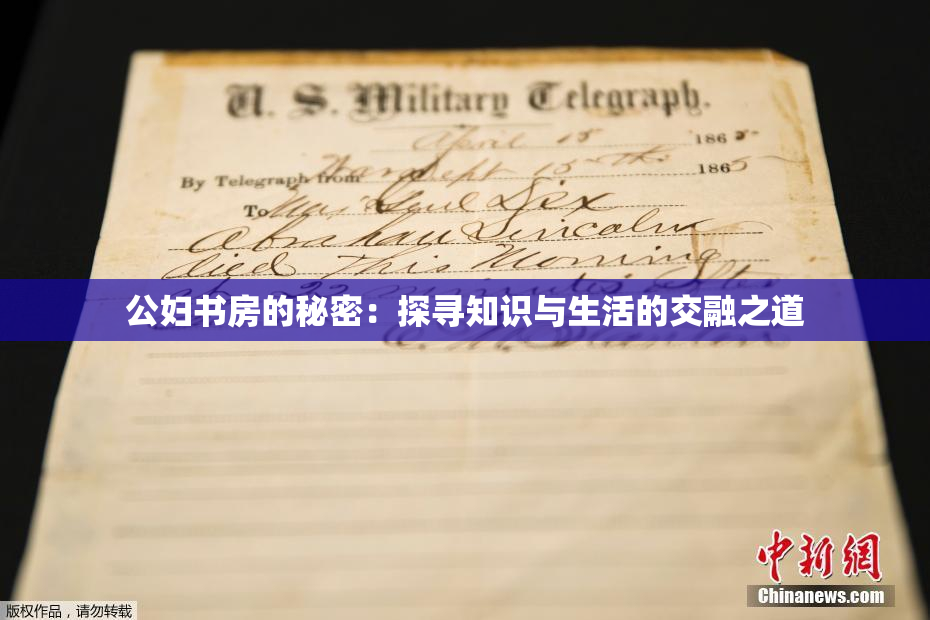 U. S. Military Telegraph.
April 15 1865
By Telegraph from War Dept 15th 1865
To Maj Genl Dix
Abraham Lincoln
died This Morning
22 minutes after
公妇书房的秘密：探寻知识与生活的交融之道
E. M. Stanton
中新网
Chinanews.com
版权作品，请勿转载